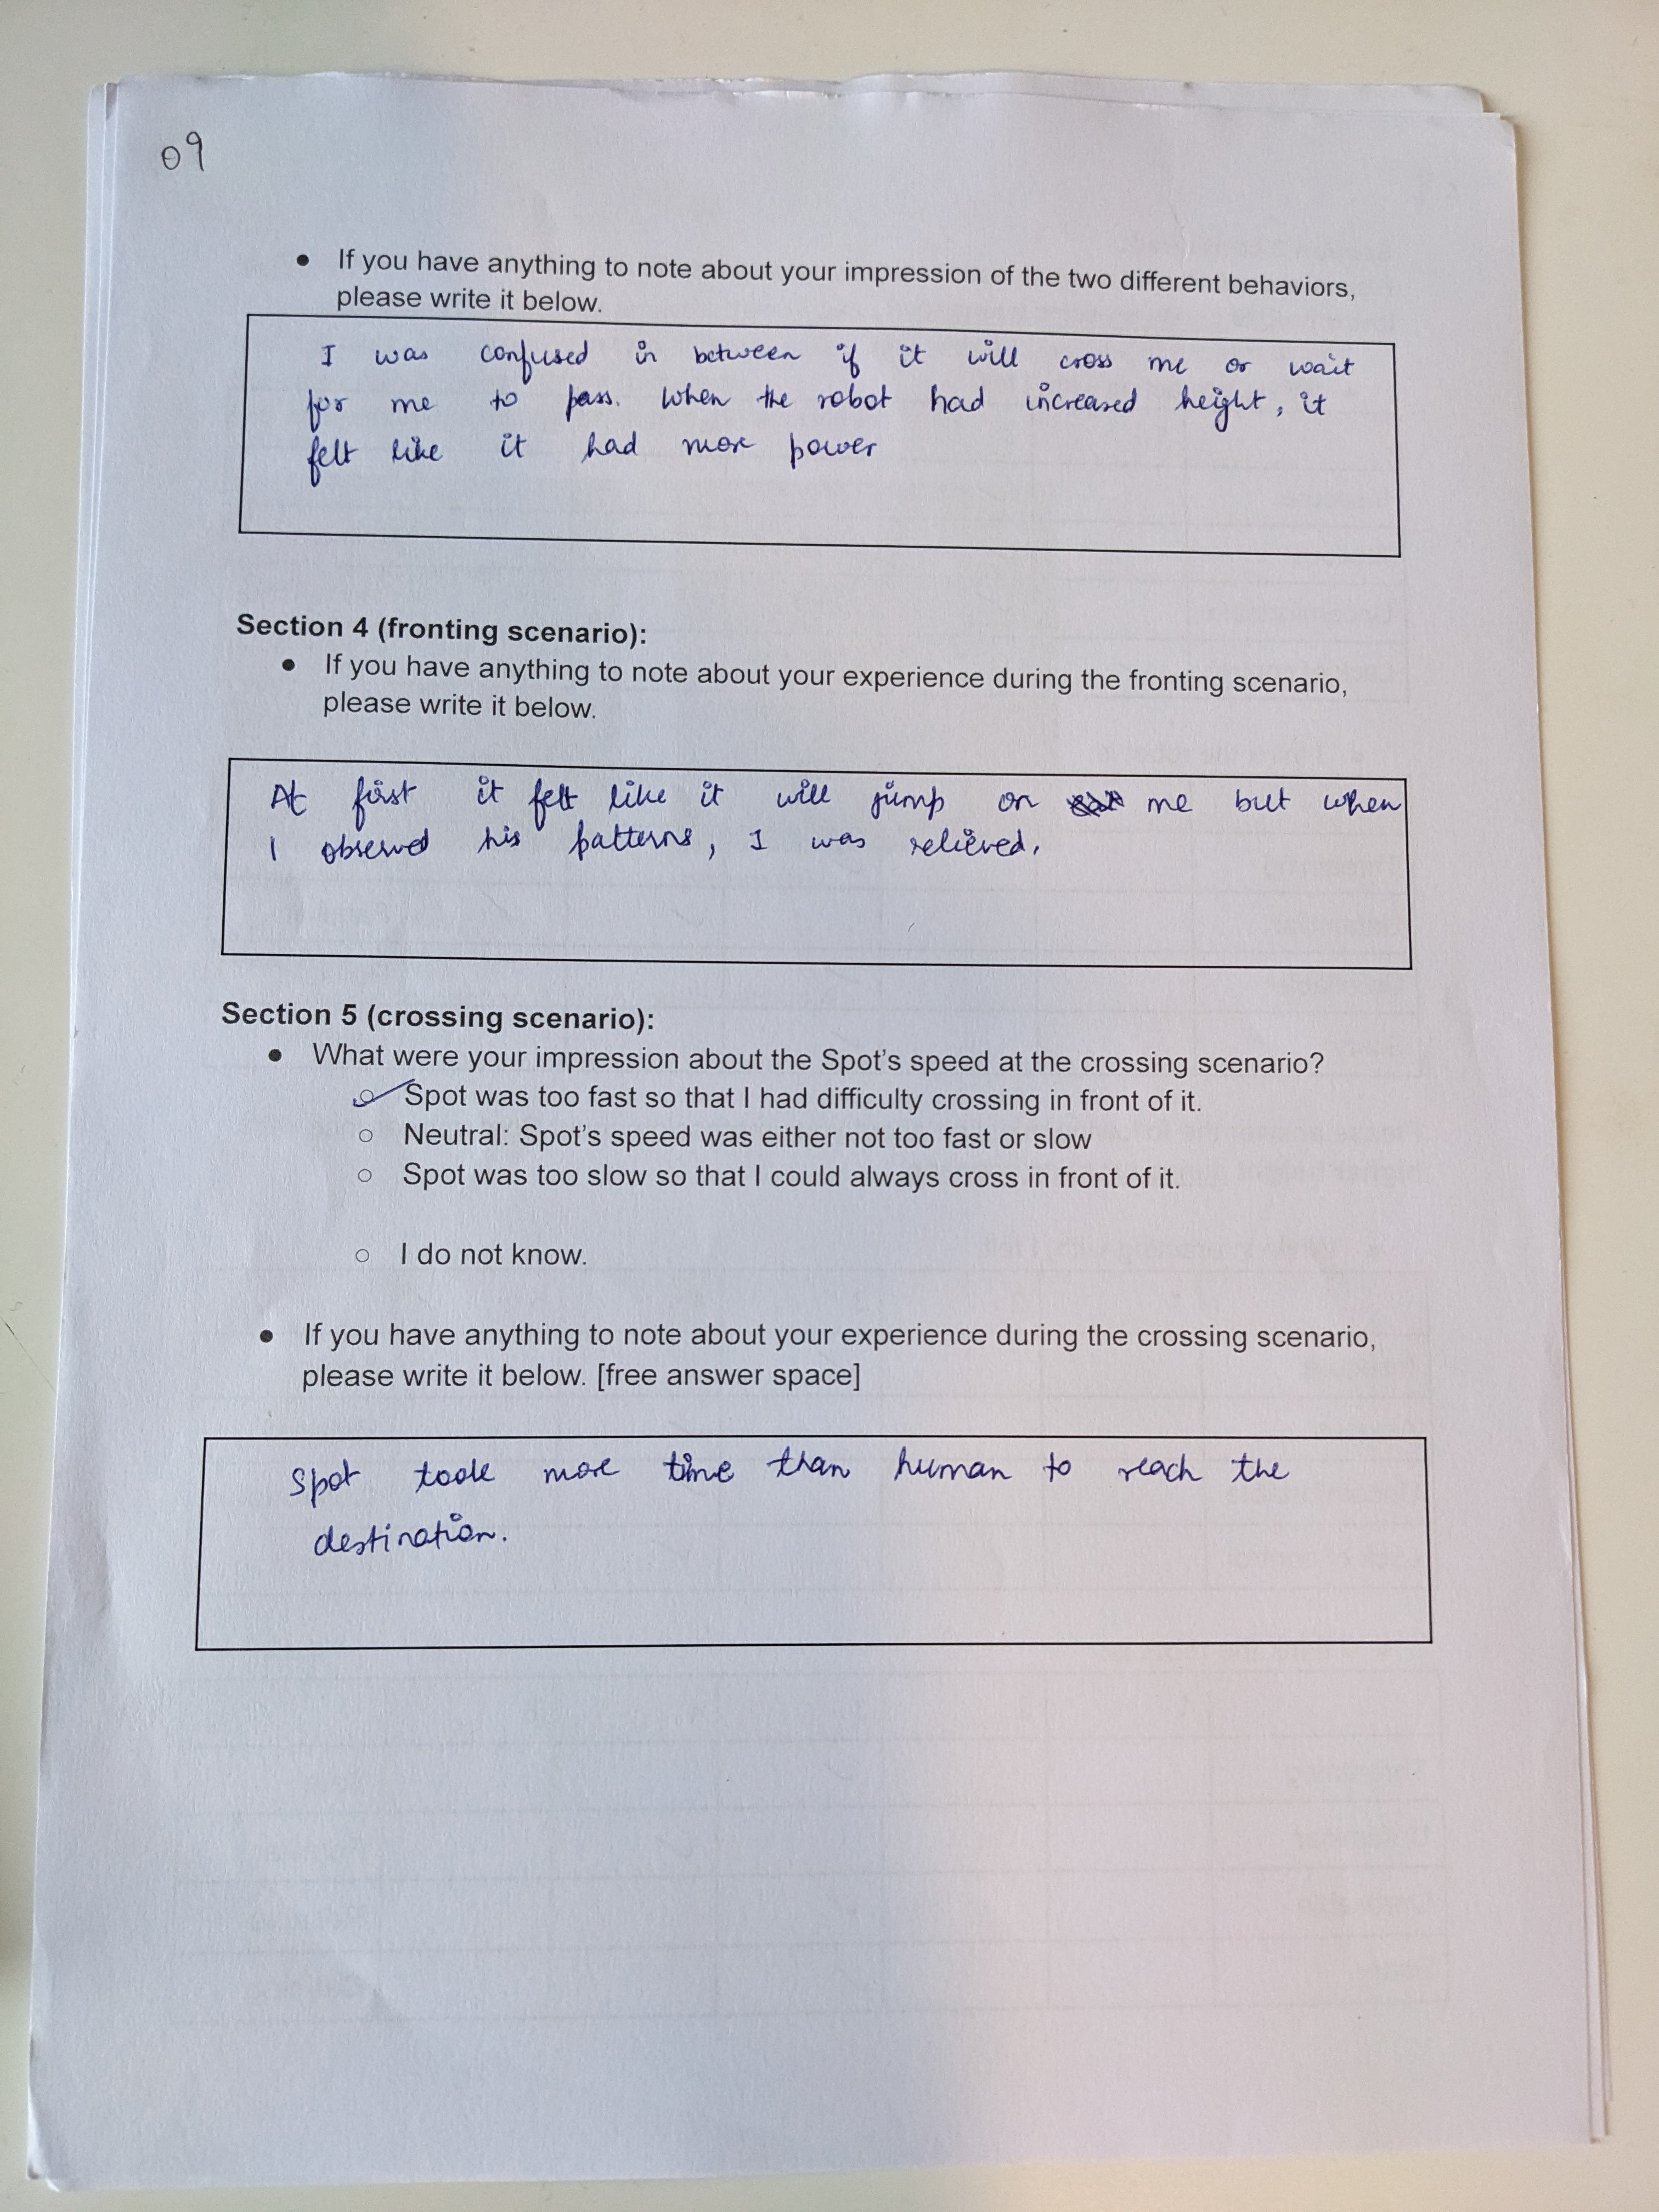 09
• If you have anything to note about your impression of the two different behaviors,
please write it below.
I was confused in between if it will cross me or wait
for me to pass. When the robot had increased height, it
felt like it had more power
Section 4 (fronting scenario):
• If you have anything to note about your experience during the fronting scenario,
please write it below.
At first it felt like it will jump on me but when
I observed his patterns, I was relieved.
Section 5 (crossing scenario):
• What were your impression about the Spot's speed at the crossing scenario?
○ Spot was too fast so that I had difficulty crossing in front of it.
○ Neutral: Spot's speed was either not too fast or slow
○ Spot was too slow so that I could always cross in front of it.
○ I do not know.
• If you have anything to note about your experience during the crossing scenario,
please write it below. [free answer space]
Spot took more time than human to reach the
destination.